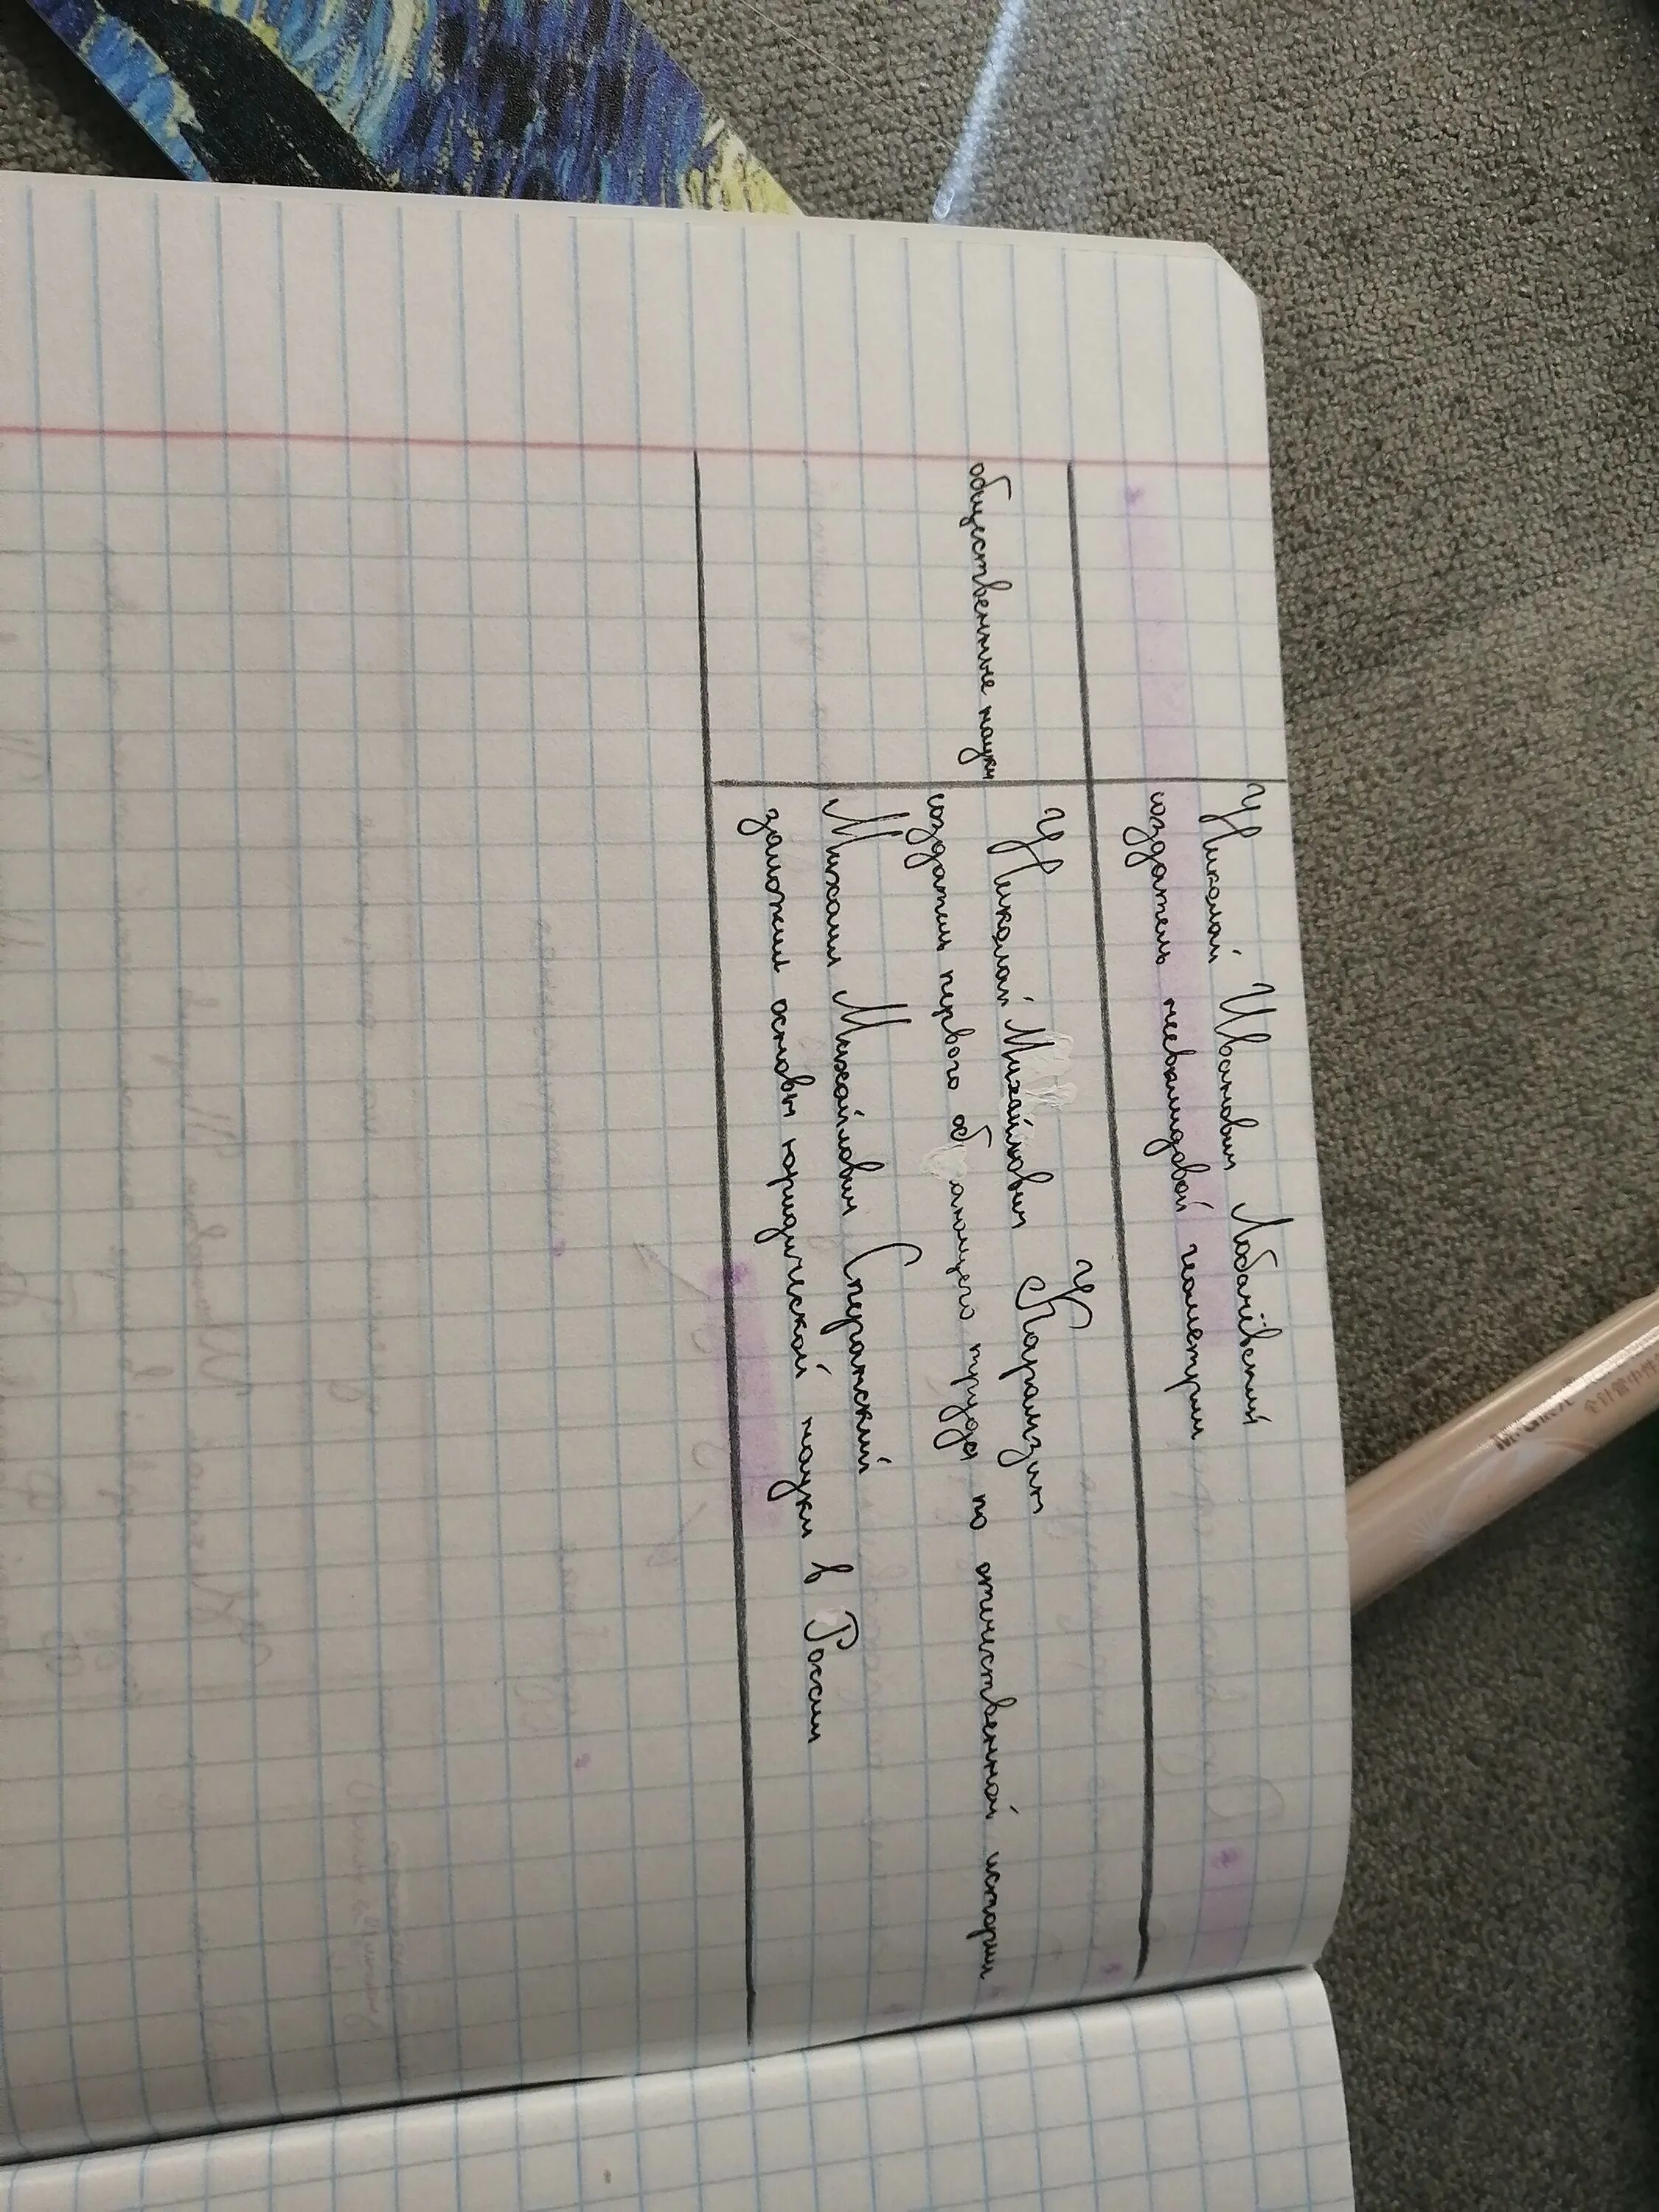 Николай Иванович Лобачевский
создатель неевклидовой геометрии
общественные науки
Николай Михайлович Карамзин
создатель первого об ающего труда по отечественной истории
Михаил Михайлович Сперанский
заложил основы юридической науки в России